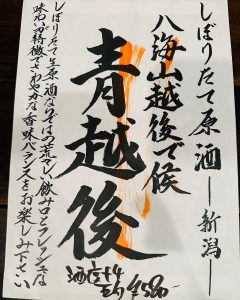 しぼりたて原酒ー新潟ー
八海山越後で候
青越後
しぼりたて生原酒ならではの荒々しい飲み口とフレッシュな
味わいが特徴でさわやかな香味バランスをお楽しみ下さい
酒度+4